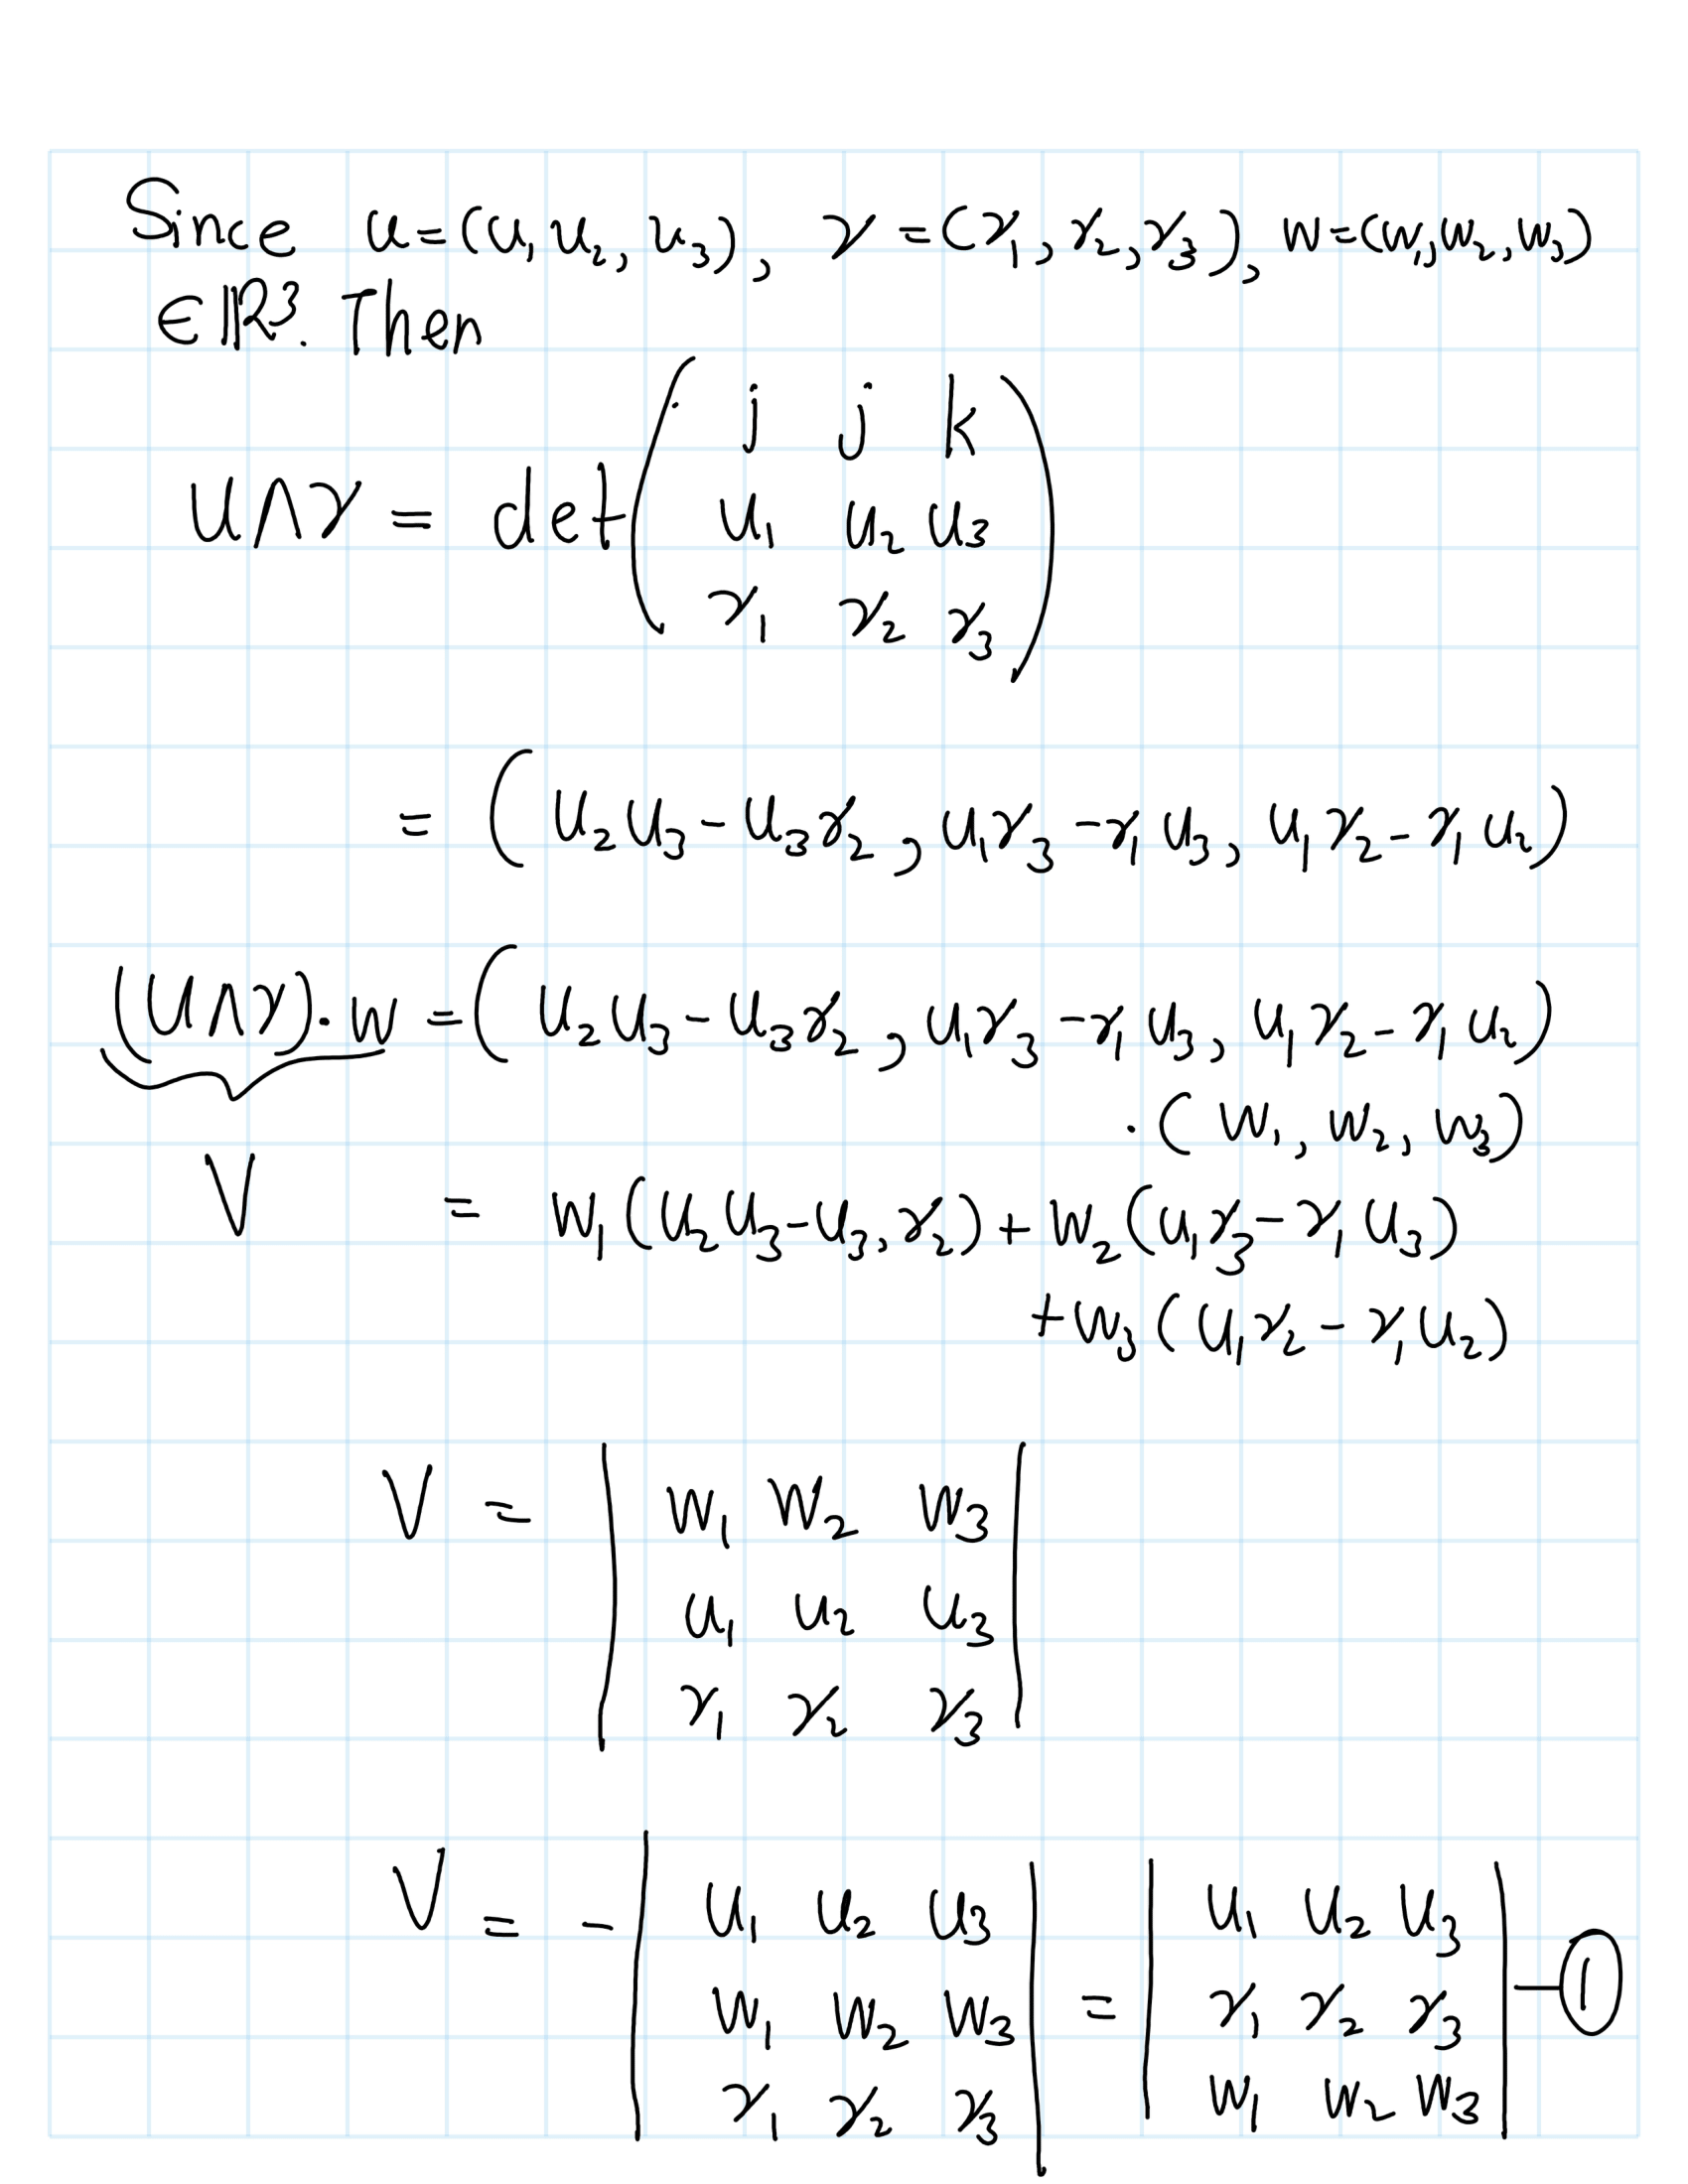 Since u=(u₁,u₂,u₃), γ=(γ₁,γ₂,γ₃), w=(w₁,w₂,w₃)
∈ℝ³. Then
U∧γ = det( j j k
u₁ u₂ u₃
γ₁ γ₂ γ₃ )
= (u₂u₃-u₃γ₂, u₁γ₃-γ₁u₃, u₁γ₂-γ₁u₂)
(U∧γ)·w = (u₂u₃-u₃γ₂, u₁γ₃-γ₁u₃, u₁γ₂-γ₁u₂)
·(w₁, w₂, w₃)
V = w₁(u₂u₃-u₃,γ₂)+w₂(u₁γ₃-γ₁u₃)
+w₃(u₁γ₂-γ₁u₂)
V = | w₁ w₂ w₃
u₁ u₂ u₃
γ₁ γ₂ γ₃ |
V = - | u₁ u₂ u₃ | = | u₁ u₂ u₃ | - ①
| w₁ w₂ w₃ | | γ₁ γ₂ γ₃ |
| γ₁ γ₂ γ₃ | | w₁ w₂ w₃ |